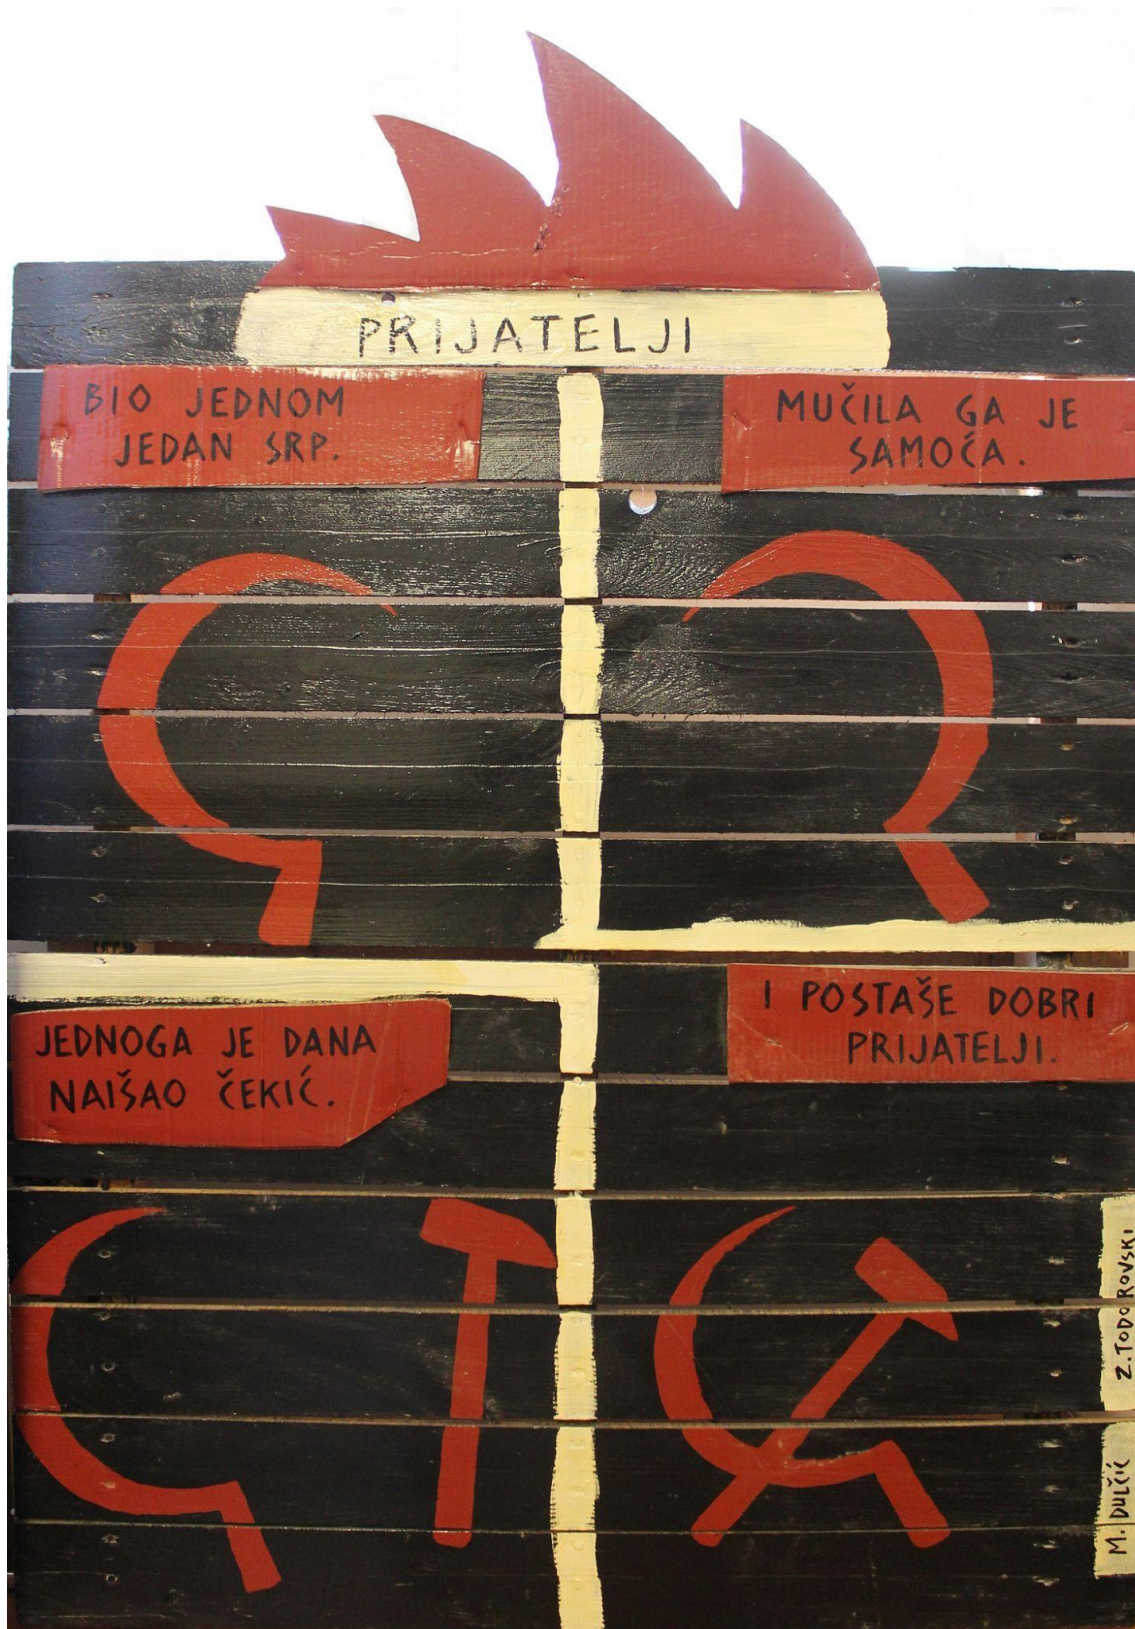 PRIJATELJI
BIO JEDNOM
JEDAN SRP.
MUČILA GA JE
SAMOĆA.
JEDNOGA JE DANA
NAIŠAO ČEKIĆ.
I POSTAŠE DOBRI
PRIJATELJI.
M. DULČIĆ
Z. TODOROVSKI